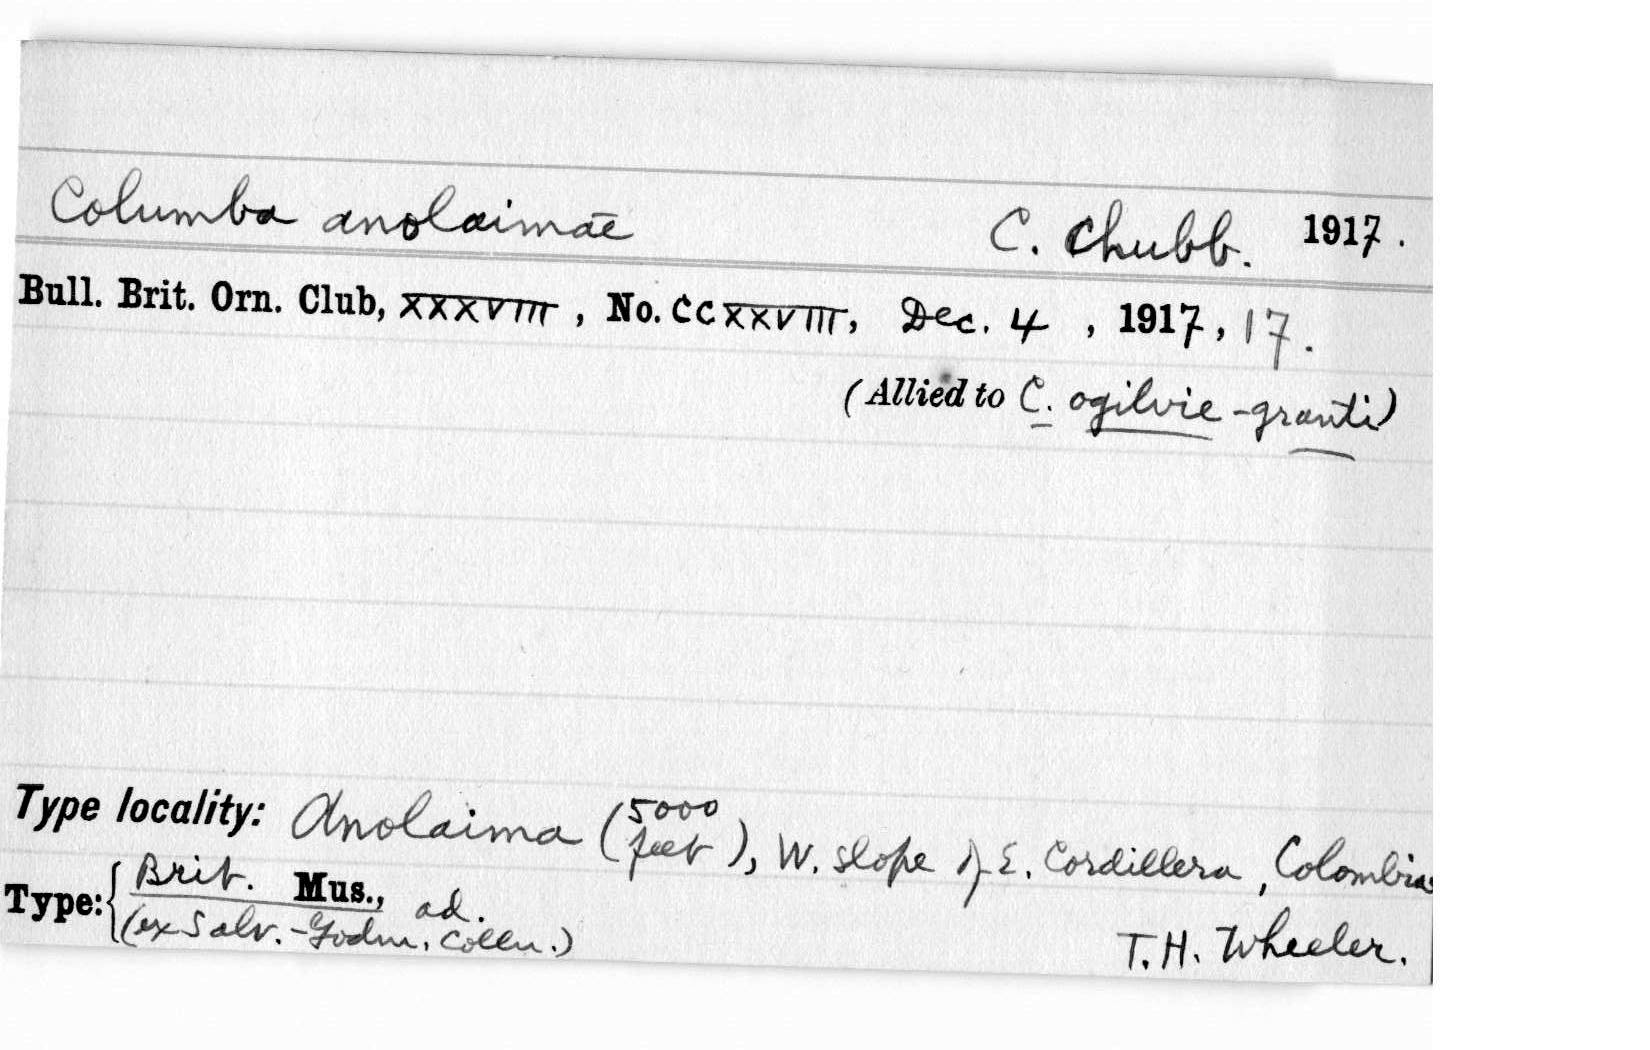 Columba anolaimae C. Chubb. 1917.
Bull. Brit. Orn. Club, XXXVIII, No. CCXXVIII, Dec. 4, 1917, 17.
(Allied to C. ogilvie-granti)
Type locality: Anolaima (5000 feet), W. slope of E. Cordillera, Colombia
Type: { Brit. Mus., ad.
(ex Salv.-Godm. Colln.) T. H. Wheeler.